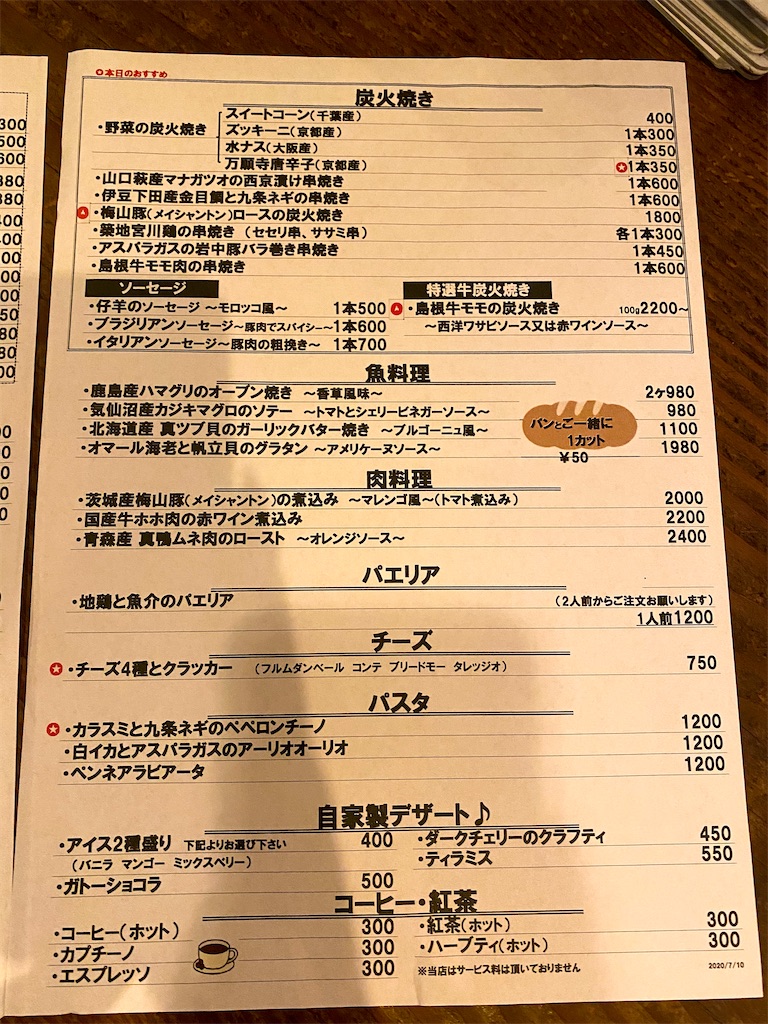 ✪本日のおすすめ
炭火焼き
・野菜の炭火焼き
スイートコーン(千葉産) 400
ズッキーニ(京都産) 1本300
水ナス(大阪産) 1本350
万願寺唐辛子(京都産) ✪1本350
・山口萩産マナガツオの西京漬け串焼き 1本600
・伊豆下田産金目鯛と九条ネギの串焼き 1本600
・梅山豚(メイシャントン)ロースの炭火焼き 1800
・築地宮川鶏の串焼き (セセリ串、ササミ串) 各1本300
・アスパラガスの岩中豚バラ巻き串焼き 1本450
・島根牛モモ肉の串焼き 1本600
ソーセージ
・仔羊のソーセージ ～モロッコ風～ 1本500
・ブラジリアンソーセージ～豚肉でスパイシー～ 1本600
・イタリアンソーセージ～豚肉の粗挽き～ 1本700
特選牛炭火焼き
・島根牛モモの炭火焼き 100g2200~
～西洋ワサビソース又は赤ワインソース～
魚料理
・鹿島産ハマグリのオーブン焼き ～香草風味～ 2ヶ980
・気仙沼産カジキマグロのソテー ～トマトとシェリービネガーソース～ 980
・北海道産 真ツブ貝のガーリックバター焼き ～ブルゴーニュ風～ 1100
・オマール海老と帆立貝のグラタン ～アメリケーヌソース～ 1980
パンとご一緒に
1カット
¥50
肉料理
・茨城産梅山豚(メイシャントン)の煮込み ～マレンゴ風～(トマト煮込み) 2000
・国産牛ホホ肉の赤ワイン煮込み 2200
・青森産 真鴨ムネ肉のロースト ～オレンジソース～ 2400
パエリア
・地鶏と魚介のパエリア (2人前からご注文お願いします)
1人前1200
チーズ
✪・チーズ4種とクラッカー (フルムダンベール コンテ ブリードモー タレッジオ) 750
パスタ
✪・カラスミと九条ネギのペペロンチーノ 1200
・白イカとアスパラガスのアーリオオーリオ 1200
・ペンネアラビアータ 1200
自家製デザート♪
・アイス2種盛り 下記よりお選び下さい 400
(バニラ マンゴー ミックスベリー)
・ガトーショコラ 500
・ダークチェリーのクラフティ 450
・ティラミス 550
コーヒー・紅茶
・コーヒー(ホット) 300
・カプチーノ 300
・エスプレッソ 300
・紅茶(ホット) 300
・ハーブティ(ホット) 300
※当店はサービス料は頂いておりません
2020/7/10